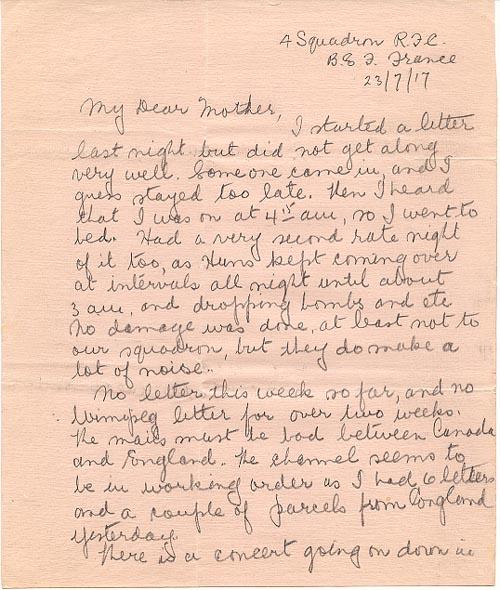 4 Squadron R.F.C.
B.E.F. France
23/7/17
My Dear Mother,
I started a letter
last night but did not get along
very well. Someone came in, and I
guess stayed too late. Then I heard
that I was on at 4 15 am, so I went to
bed. Had a very second rate night
of it too, as Huns kept coming over
at intervals all night until about
3 am, and dropping bombs and etc
No damage was done, at least not to
our squadron, but they do make a
lot of noise.
No letter this week so far, and no
Winnipeg letter for over two weeks.
The mails must be bad between Canada
and England. The channel seems to
be in working order as I had 6 letters
and a couple of parcels from England
yesterday.
There is a concert going on down in